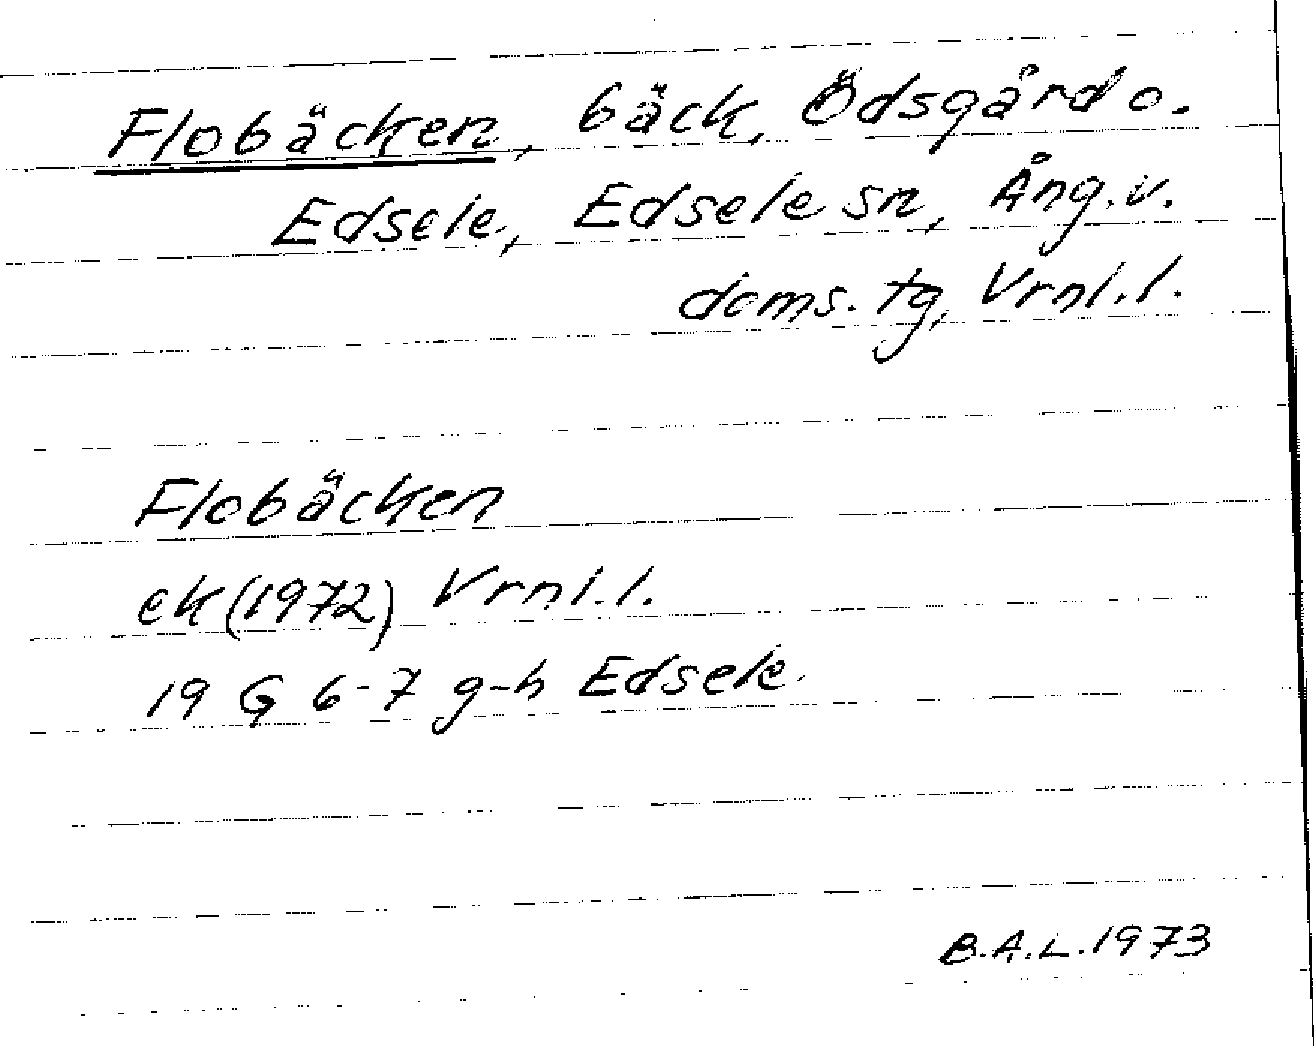 Flobäcken, bäck, Ödsgård o.
Edsele, Edsele sn, Ång.v.
doms. tg, Vrnl.l.
Flobäcken
ek (1972) Vrnl.l.
19 G 6-7 g-h Edsele
B.A.L. 1973